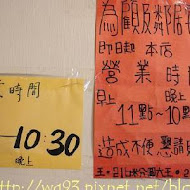 時間
10:30
晚上
為顧及鄰居
即日起 本店
營業時
晚上
11點~10點
造成不便 懇請
http://wa93.pixnet.net/bl